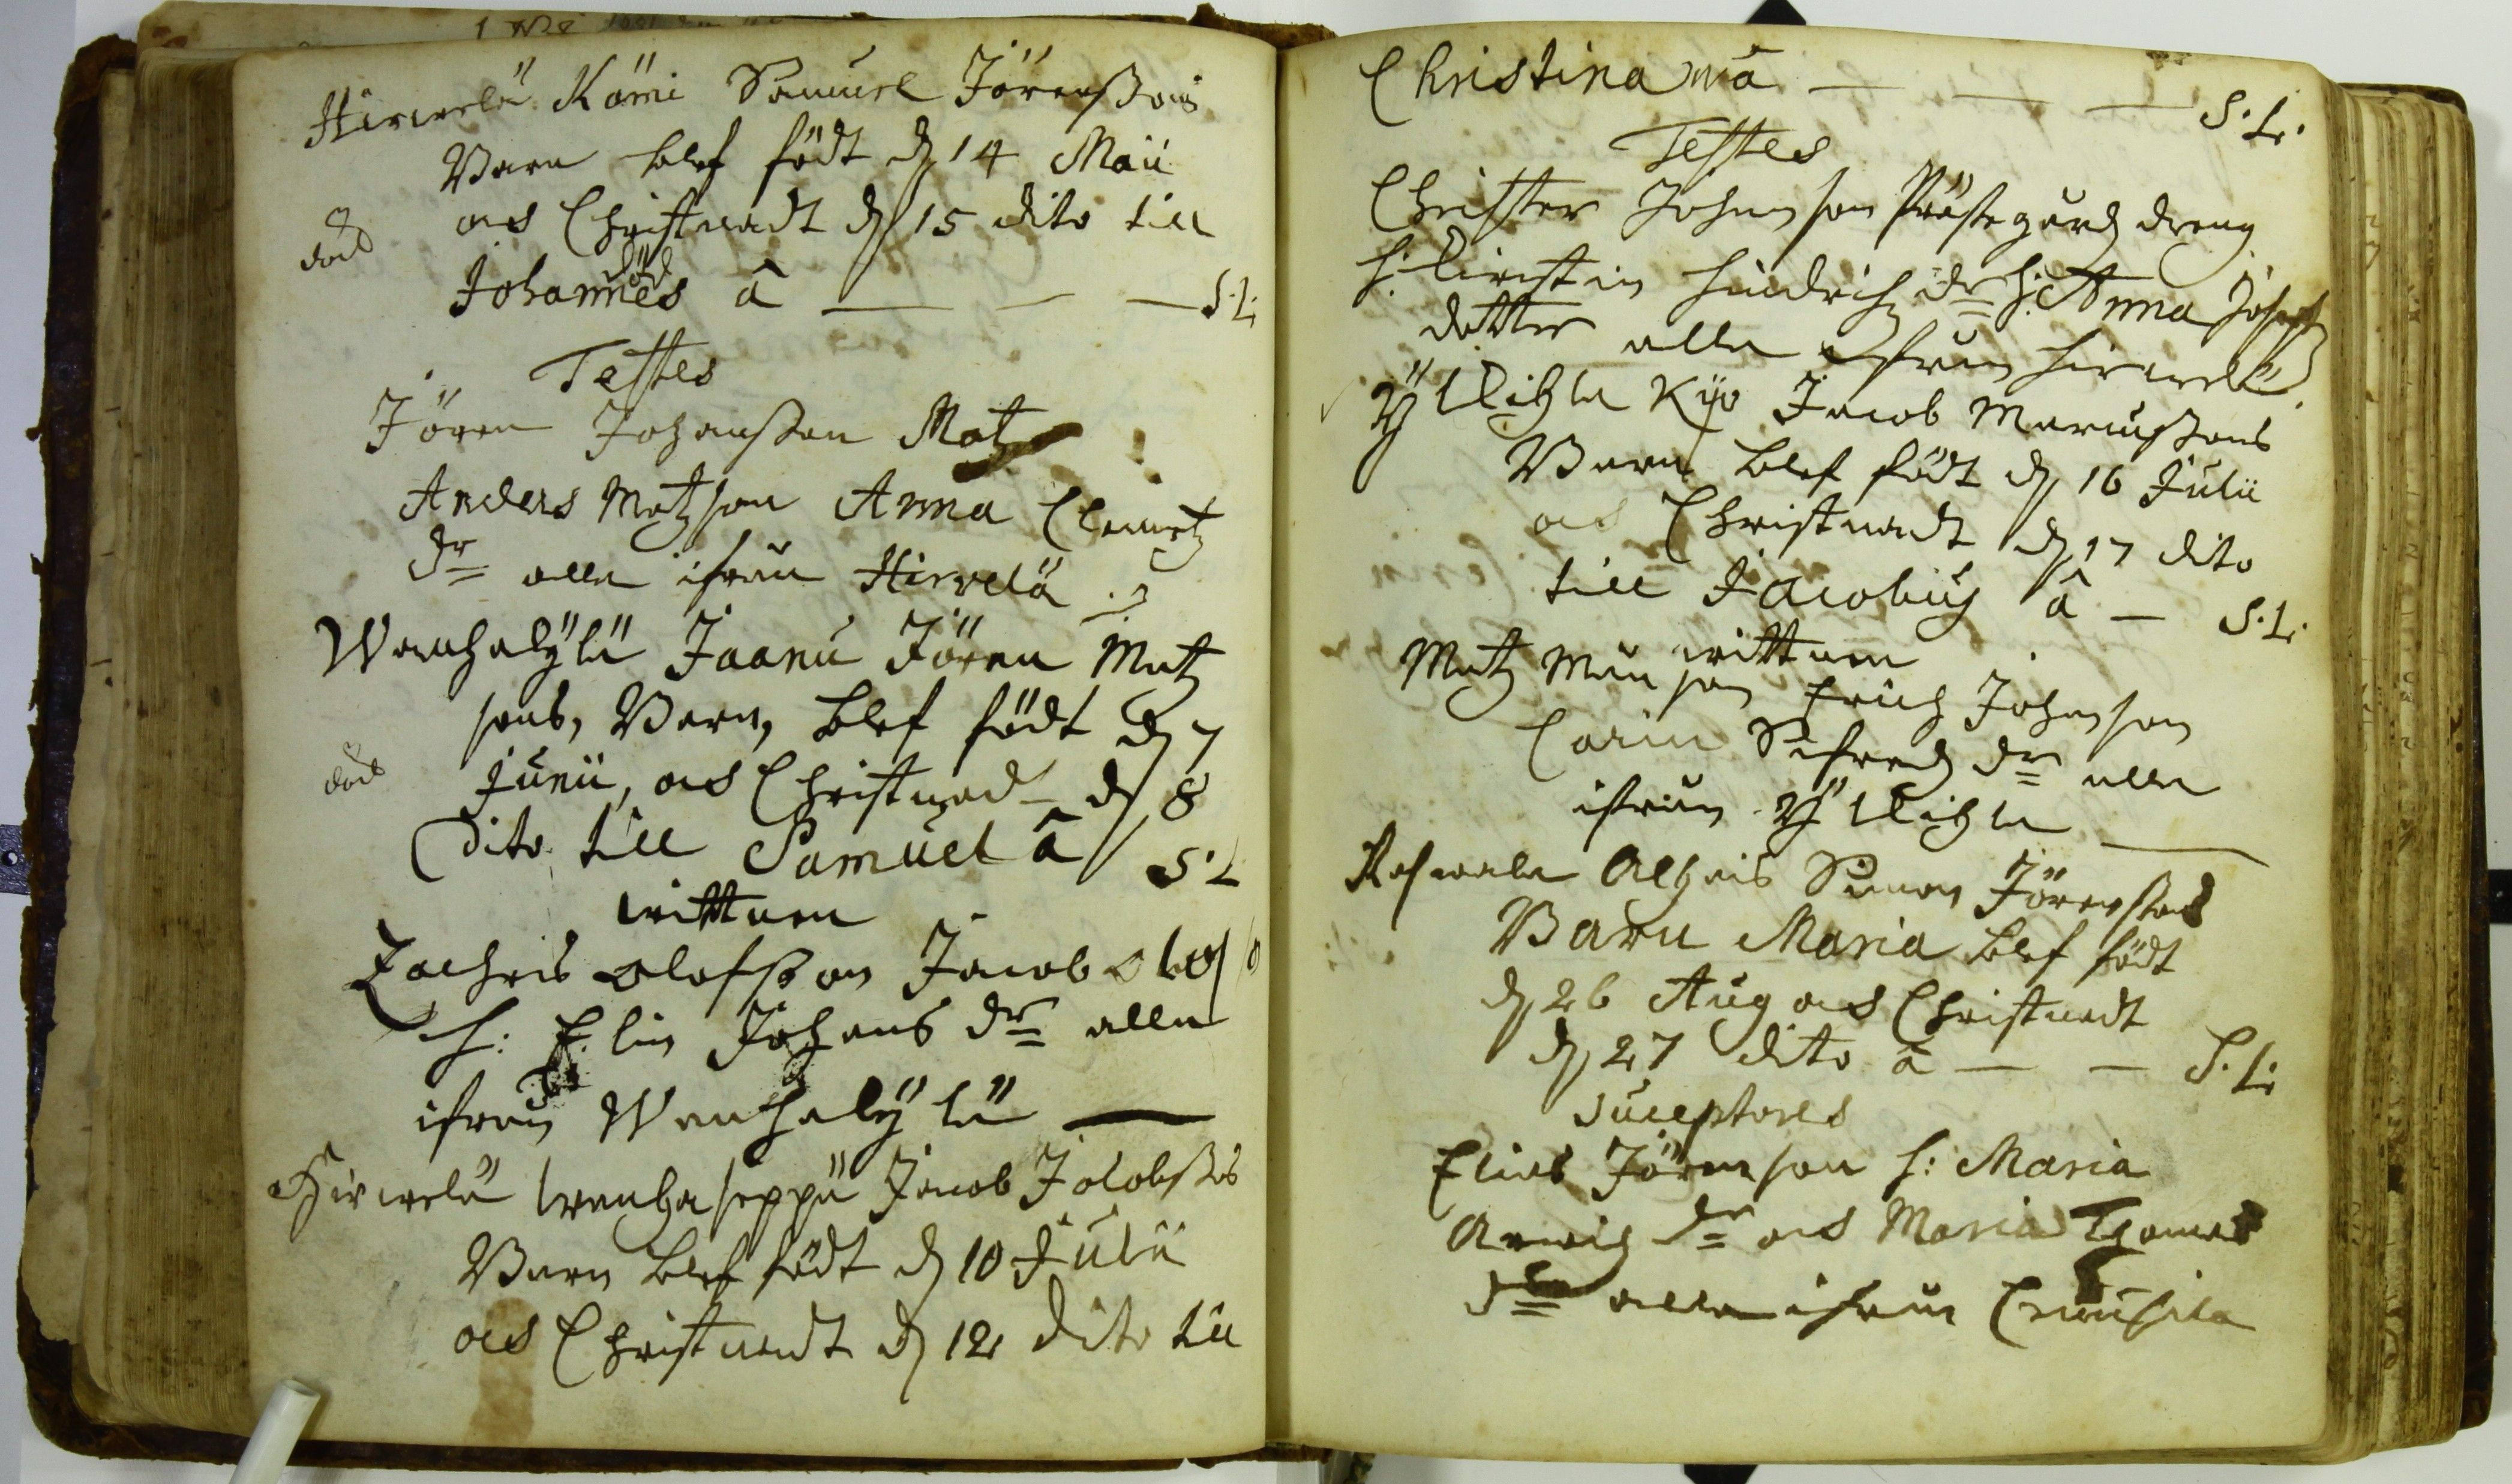 Hirvelä Kämi Samuel Jörenßons
Barn blef födt d 14 Maii
död
ock Christnadt d 15 dito till
död
Johannes â — — — S:L:
Testes
Jören Johanßon Matz
Anders Matzson Anna Clemetz
dr alla ifrån Hirvelä
Wanhakylä Jaanu Jören Matz
sons, Barn, blef födt d 7
död
Junii, ock Christnad d 8
Dito till Samuel â S:L
wittnen
Zachris Olofsson Jacob Olofs
h: Elin Johans dr alla
ifrån Wanhakylä —
Hirvelä wanhaseppä Jacob Jacobßons
Barn blef födt d 10 Julii
ock Christnadt d 12 dito till
Christina â — — — S:L:
Testes
Christer Johanson Prästegårdz dreng
h: Kirstin Hindrichz dr h: Anna Josephz
dotter alla ifrån Hirvelä
Ylikylä Kijo Jacob Marcußons
Barn blef födt d 16 Julii
ock Christnadt d 17 dito
till Jacobus â — S:L:
wittnen
Matz Månson Erich Johanson
Carin Sifredz dr alla
ifrån Ylikylä —
Simon Jörenßons
Barn Maria blef födt
d 26 Aug ock Christnadt
d 27 dito â — — S:L:
Suceptores
Elias Jörenson h: Maria
dr ock Maria Thomas
dr alla ifrån